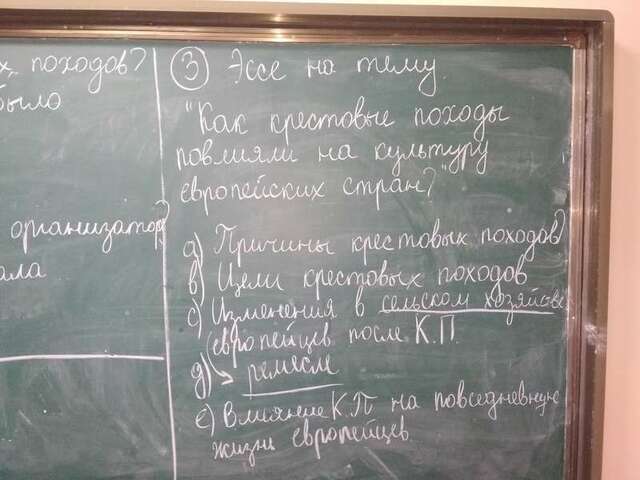 х походов?
было
организатор?
ала
③ Эссе на тему.
"Как крестовые походы
повлияли на культуру
европейских стран?"
а) Причины крестовых походов?
в) Цели крестовых походов
с) Изменения в сельском хозяйстве
европейцев после К.П.
д) ремесле
е) Влияние К.П на повседневную
жизнь европейцев